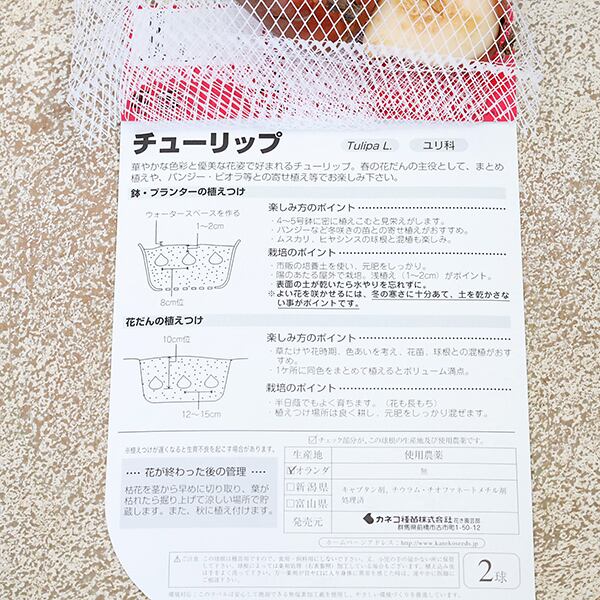 チューリップ
Tulipa L.
ユリ科
華やかな色彩と優美な花姿で好まれるチューリップ。春の花だんの主役として、まとめ
植えや、パンジー・ビオラ等との寄せ植え等でお楽しみ下さい。
鉢・プランターの植えつけ
ウォータースペースを作る
1〜2cm
8cm位
楽しみ方のポイント
・4〜5号鉢に密に植えこむと見栄えがします。
・パンジーなど冬咲きの苗との寄せ植えがおすすめ。
・ムスカリ、ヒヤシンスの球根と混植も楽しみ。
栽培のポイント
・市販の培養土を使い、元肥をしっかり。
・陽のあたる屋外で栽培。浅植え（1〜2cm）がポイント。
・表面の土が乾いたら水やりを忘れずに。
※よい花を咲かせるには、冬の寒さに十分あて、土を乾かさな
い事がポイントです。
花だんの植えつけ
10cm位
12〜15cm
楽しみ方のポイント
・草たけや花時期、色あいを考え、花苗、球根との混植がおす
すめ。
・1ケ所に同色をまとめて植えるとボリューム満点。
栽培のポイント
・半日蔭でもよく育ちます。（花も長もち）
・植えつけ場所は良く耕し、元肥をしっかり混ぜます。
※植えつけが遅くなると生育不良を起こす場合があります。
花が終わった後の管理
枯花を茎から早めに切り取り、葉が
枯れたら掘り上げて涼しい場所で貯
蔵します。また、秋に植え付けます。
☑チェック部分が、この球根の生産地及び使用農薬です。
生産地
使用農薬
☑オランダ
無
□新潟県
□富山県
キャプタン剤、チウラム・チオファネートメチル剤
処理済
発売元
カネコ種苗株式会社 花き園芸部
群馬県前橋市古市町1-50-12
ホームページアドレス：http://www.kanekoseeds.jp
2球